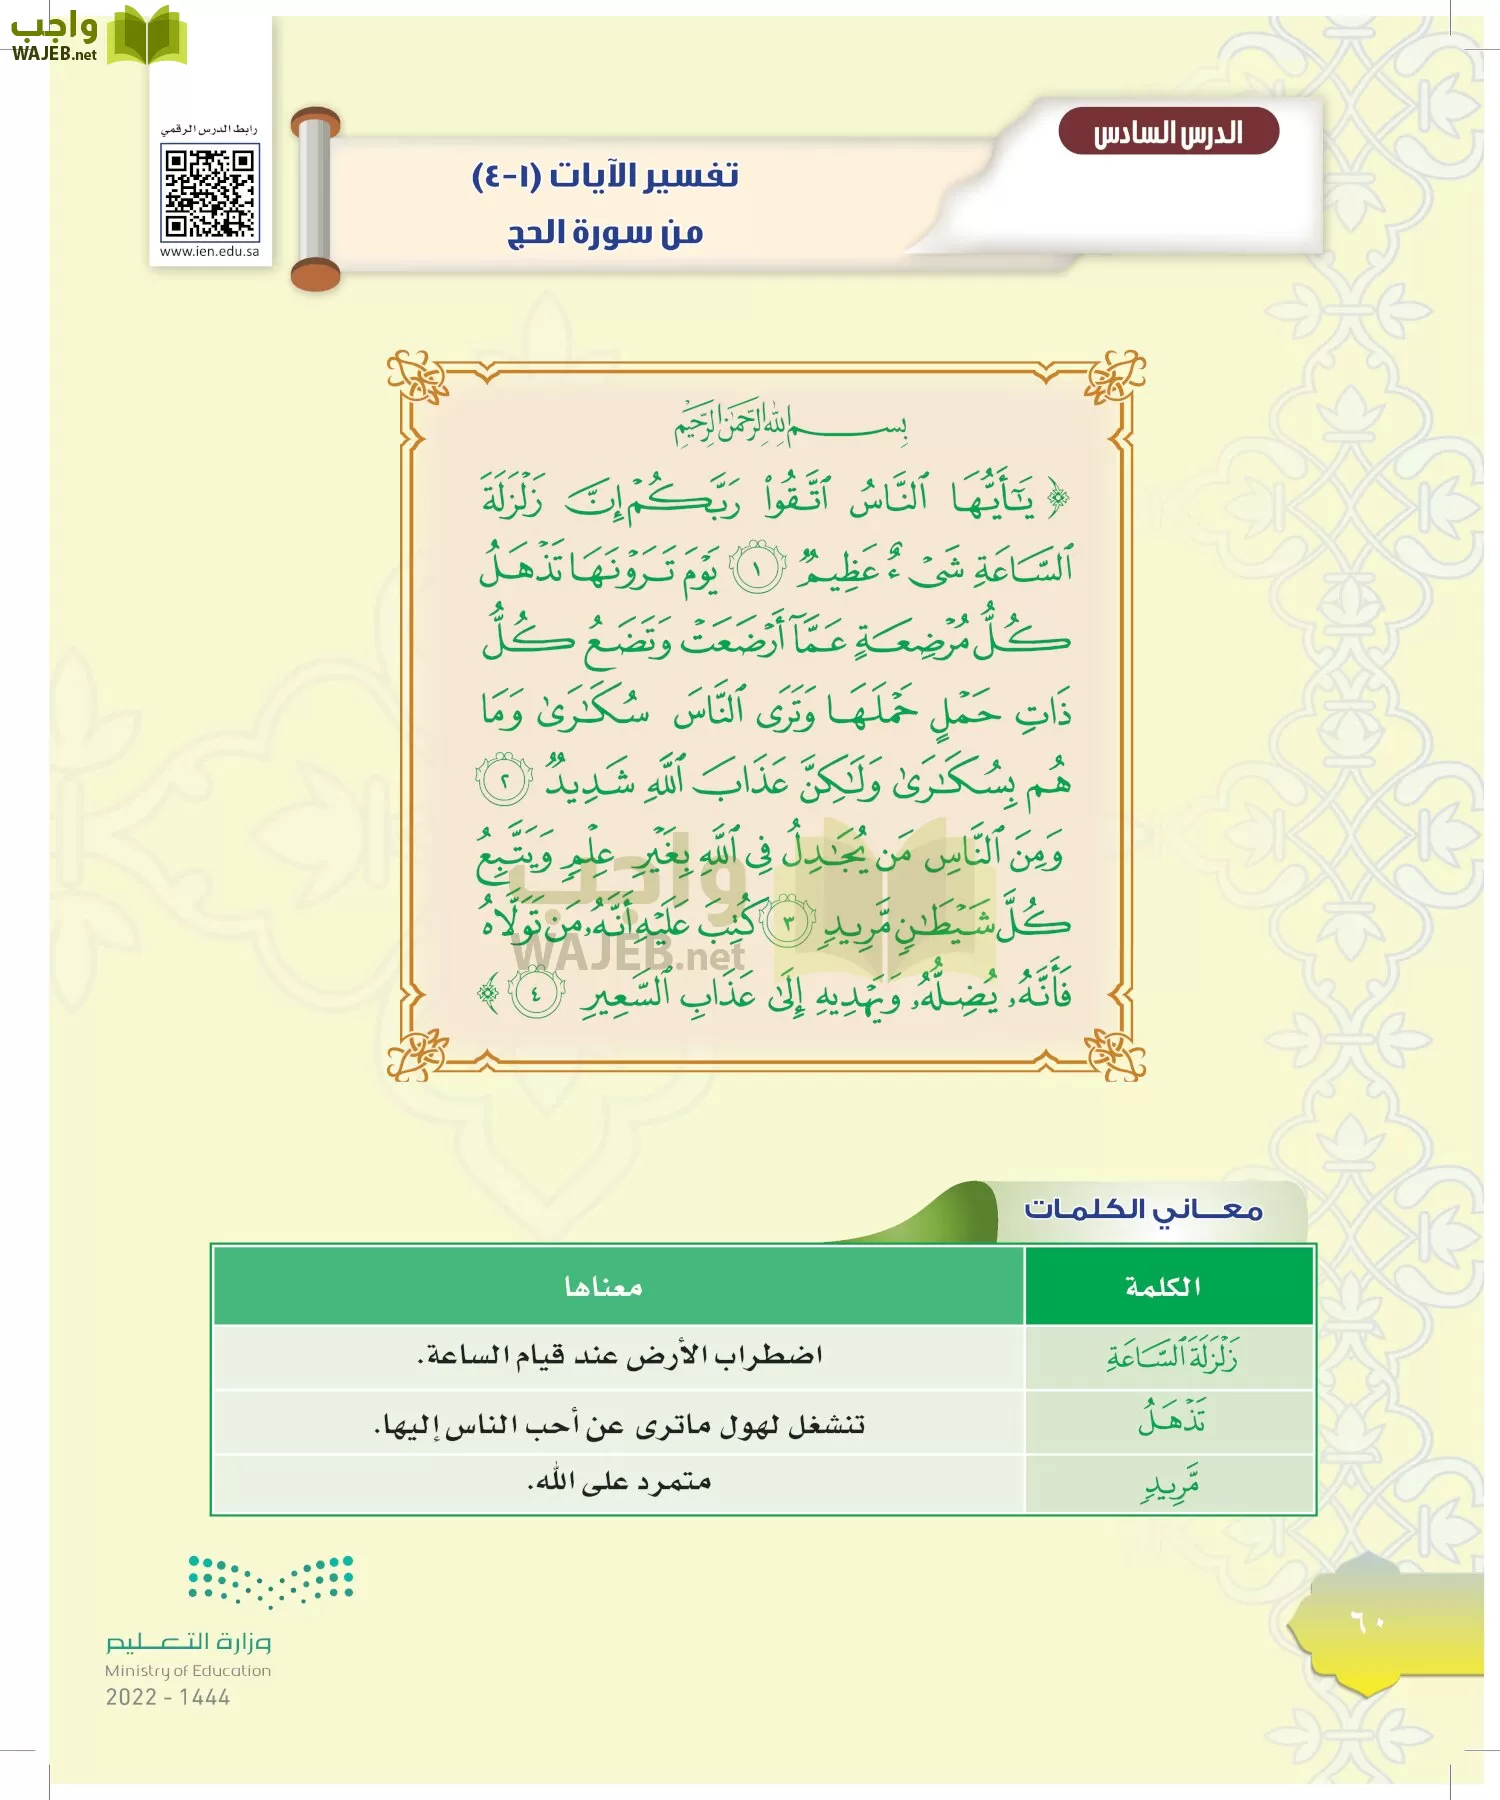 واجب
WAJEB.net
رابط الدرس الرقمي
www.ien.edu.sa
الدرس السادس
تفسير الآيات (١-٤)
من سورة الحج
بِسْمِ اللَّهِ الرَّحْمَٰنِ الرَّحِيمِ
﴿ يَٰٓأَيُّهَا ٱلنَّاسُ ٱتَّقُوا۟ رَبَّكُمْ إِنَّ زَلْزَلَةَ
ٱلسَّاعَةِ شَىْءٌ عَظِيمٌ ١ يَوْمَ تَرَوْنَهَا تَذْهَلُ
كُلُّ مُرْضِعَةٍ عَمَّآ أَرْضَعَتْ وَتَضَعُ كُلُّ
ذَاتِ حَمْلٍ حَمْلَهَا وَتَرَى ٱلنَّاسَ سُكَٰرَىٰ وَمَا
هُم بِسُكَٰرَىٰ وَلَٰكِنَّ عَذَابَ ٱللَّهِ شَدِيدٌ ٢
وَمِنَ ٱلنَّاسِ مَن يُجَٰدِلُ فِى ٱللَّهِ بِغَيْرِ عِلْمٍ وَيَتَّبِعُ
كُلَّ شَيْطَٰنٍ مَّرِيدٍ ٣ كُتِبَ عَلَيْهِ أَنَّهُۥ مَن تَوَلَّاهُ
فَأَنَّهُۥ يُضِلُّهُۥ وَيَهْدِيهِ إِلَىٰ عَذَابِ ٱلسَّعِيرِ ٤ ﴾
واجب
WAJEB.net
معـــاني الكلمـات
الكلمة معناها
زَلْزَلَةَ ٱلسَّاعَةِ اضطراب الأرض عند قيام الساعة.
تَذْهَلُ تنشغل لهول ماترى عن أحب الناس إليها.
مَّرِيدٍ متمرد على الله.
وزارة التعـــليم
Ministry of Education
2022 - 1444
٦٠